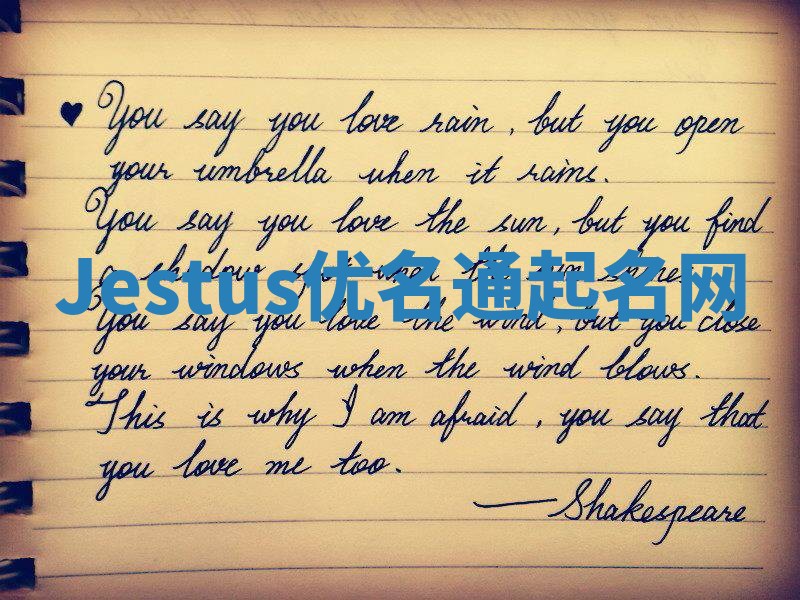 ♥ You say you love rain, but you open
your umbrella when it rains.
You say you love the sun, but you find
a shadow spot when the sun shines.
Jestus优名通起名网
You say you love the wind, but you close
your windows when the wind blows.
This is why I am afraid, you say that
you love me too.
— Shakespeare